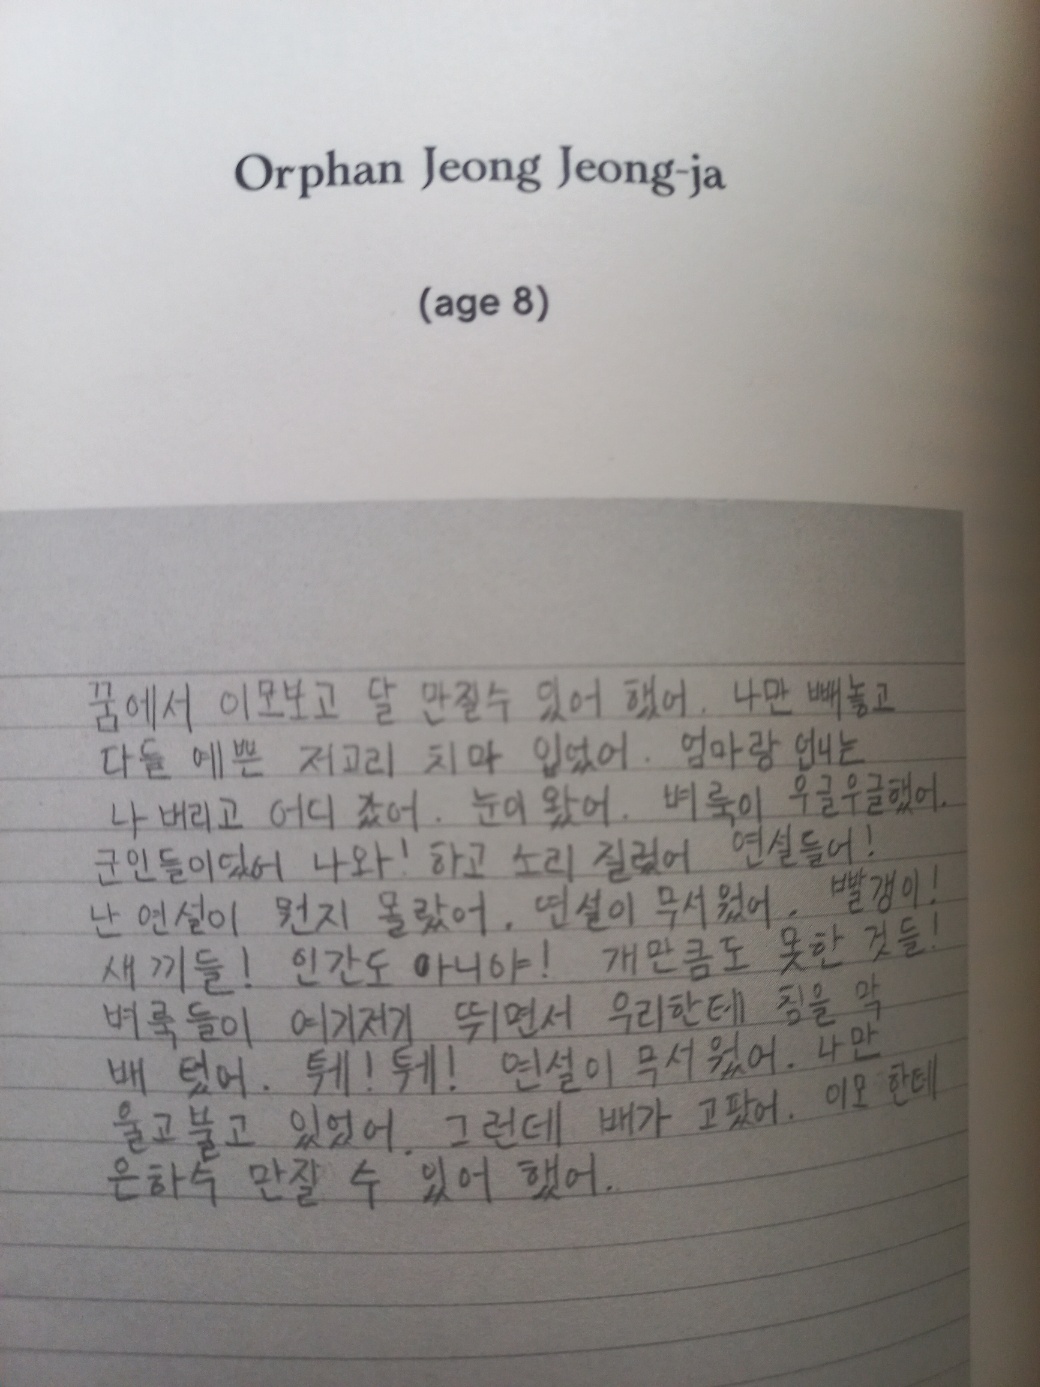 Orphan Jeong Jeong-ja
(age 8)
꿈에서 이모보고 달 만질수 있어 했어. 나만 빼놓고
다들 예쁜 저고리 치마 입었어. 엄마랑 언니는
나 버리고 어디 갔어. 눈이 왔어. 벼룩이 우글우글했어.
군인들이있어 나와! 하고 소리 질렀어 연설들어!
난 연설이 뭔지 몰랐어. 연설이 무서웠어. 빨갱이!
새끼들! 인간도 아니야! 개만큼도 못한 것들!
벼룩들이 여기저기 뛰면서 우리한테 침을 막
배텄어. 퉤! 퉤! 연설이 무서웠어. 나만
울고불고 있었어. 그런데 배가 고팠어. 이모 한테
은하수 만질 수 있어 했어.